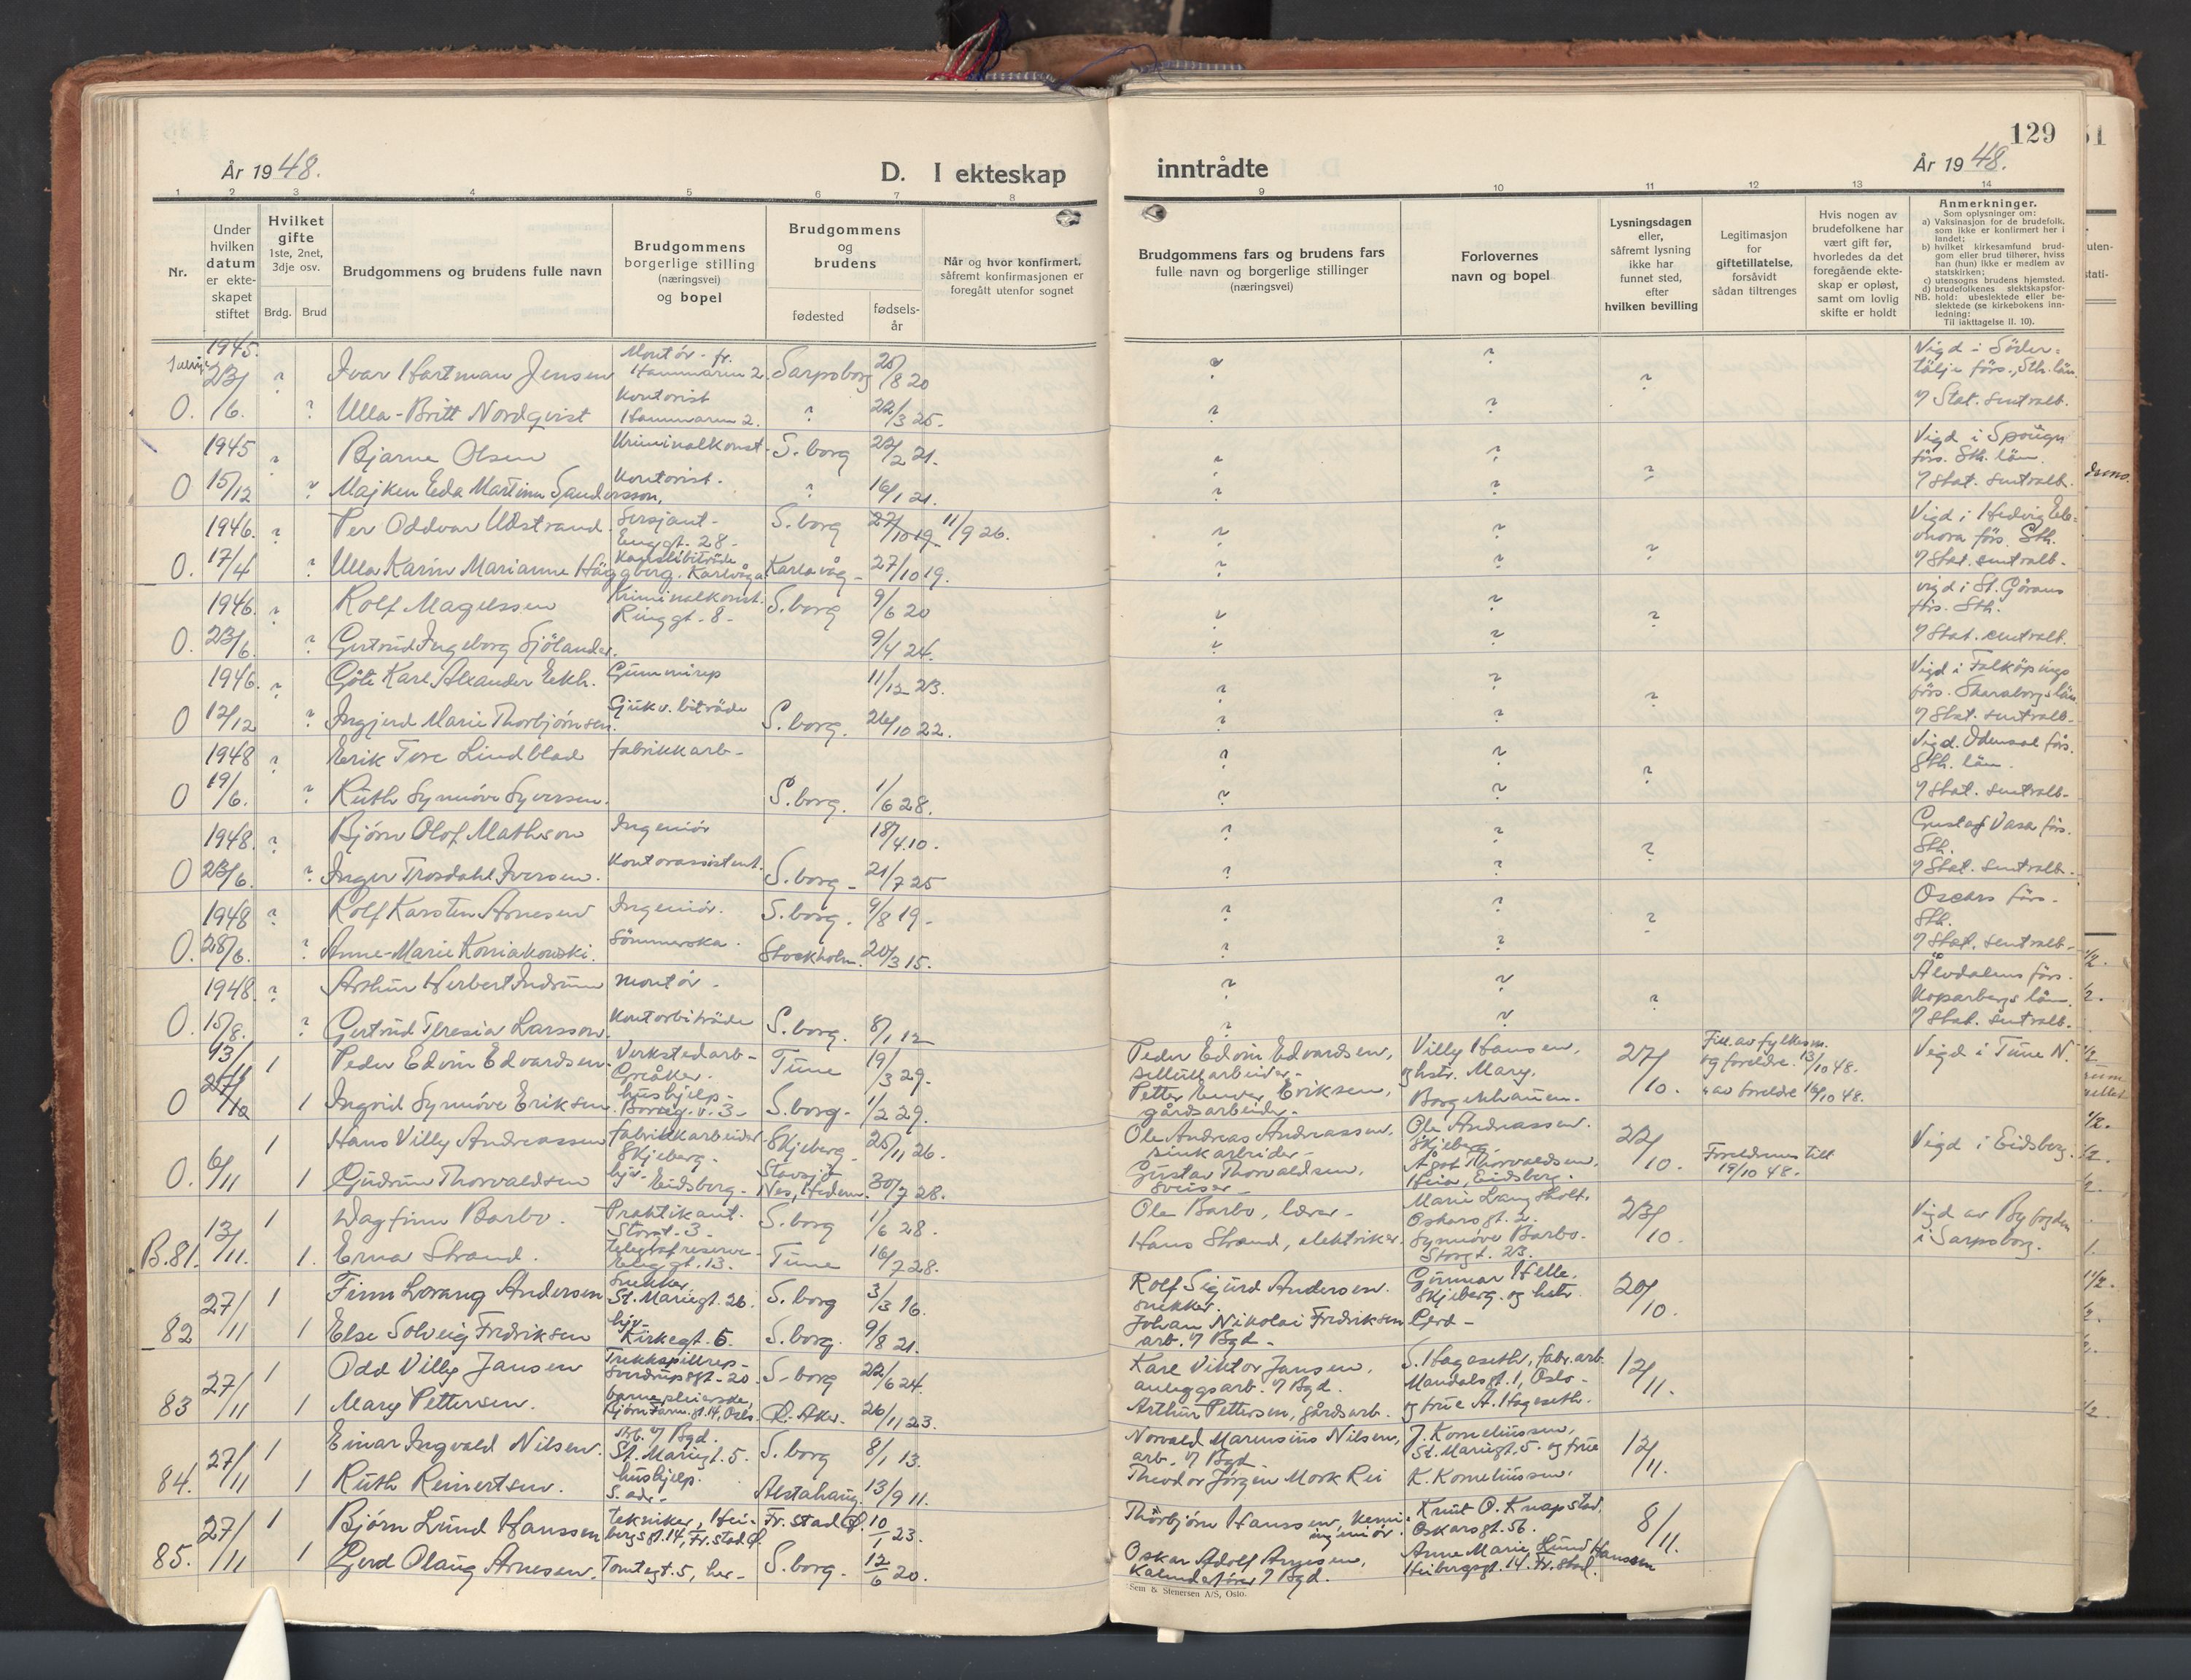 129
År 1948.
D. I ekteskap
inntrådte
År 1948.
1 2 3 4 5 6 7 8 9 10 11 12 13 14
Nr.
Under hvilken datum er ekteskapet stiftet
Hvilket gifte
1ste, 2net, 3dje osv.
Brdg. Brud
Brudgommens og brudens fulle navn
Brudgommens borgerlige stilling
(næringsvei)
og bopel
Brudgommens og brudens
fødested
fødselsår
Når og hvor konfirmert,
såfremt konfirmasjonen er
foregått utenfor sognet
Brudgommens fars og brudens fars
fulle navn og borgerlige stillinger
(næringsvei)
Forlovernes
navn og bopel
Lysningsdagen
eller,
såfremt lysning
ikke har
funnet sted,
efter
hvilken bevilling
Legitimasjon
for
giftetillatelse,
forsåvidt
sådan tiltrenges
Hvis nogen av
brudefolkene har
vært gift før,
hvorledes da det
foregående ekteskap er opløst,
samt om lovlig
skifte er holdt
Anmerkninger.
Som oplysninger om:
a) Vaksinasjon for de brudefolk, som ikke er konfirmert her i landet;
b) hvilket kirkesamfund brudgom eller brud tilhører, hviss han (hun) ikke er medlem av statskirken;
c) utensogns brudens hjemsted.
d) brudefolkenes slektskapsforhold: ubeslektede eller beslektede (se kirkebokens innledning:
NB. Til iakttagelse II. 10).
1945. 23/6. ? Ivar Hartman Jensen Montør - fr. Hammaren 2. Sarpsborg 25/8 20 ? ? ? Vigd i Södertälje förs., Sth. län.
O. ? Ulla-Britt Nordqvist Kontorist Hammaren 2. ? 22/3 25. ? ? 7 Stat. sentralb.
1945 15/12 ? Bjarne Olsen Kriminalkonst. S. borg 22/2 21. ? ? ? Vigd i förs. Sth. län.
O ? Majken Eda Martina Sandersson, Kontorist. ? 16/1 21. ? ? 7 Stat. sentralb.
1946. 17/4 ? Per Oddvar Udstrand. Sersjant - Enggt. 28 - S. borg 27/10 19. 11/9 26. ? ? ? Vigd i Hedvig Eleonora förs. Sth.
O. ? Ulla Karin Marianne Häggberg. Karlavåg - 27/10 19. ? ? 7 Stat. sentralb.
1946. 23/6. ? Rolf Magelssen Kriminalkonst. Ringgt. 8 - S. borg 9/6 20 ? ? ? vigd i St. Görans förs. Sth.
O. ? Gertrud Ingeborg Sjölander. 9/4 24. ? ? 7 Stat. sentralb.
1946. 12/12 ? Göte Karl Alexander Eckh. Gummirep 11/12 23. ? ? ? Vigd i Falköpings förs. Skaraborgs län
O ? Ingjerd Marie Thorbjørnsen. Sjukv. biträde S. borg. 26/10 22. ? ? 7 Stat. sentralb.
1948 19/6. ? Erik Tore Lindblad fabrikkarb - ? ? ? Vigd. Odensal förs. Sth. län.
O ? Ruth Synnøve Syversen. S. borg. 1/6 28. ? ? 7 Stat. sentralb-
1948. 23/6. ? Bjørn Olof Mathson Ingeniør 18/4 10. ? ? ? Gustaf Vasa förs. Sth.
O ? Inger Trosdahl Iversen. Kontorassistent. S. borg - 21/7 25 ? ? 7 Stat. sentralb-
1948 28/6. ? Rolf Karsten Arnesen Ingeniør. S. borg. 9/8 19 - ? ? ? Oscars förs. Sth.
O. ? Anne-Marie Koniakowski. Sömmerska. Stockholm. 20/3 15. ? ? 7 Stat. sentralb-
1948. 15/8. ? Arthur Herbert Indrum montør - ? ? ? Älvdalens förs. Kopparbergs län.
O. ? Gertrud Teresia Larsson. Kontorbiträde S. borg. 8/1 12 ? ? 7 Stat. sentralb.
O 13/11 1 Peder Edvin Edvardsen. Verkstedarb - Greåker. Tune 19/3 29. Peder Edvin Edvardsen, sellullarbeider - Villy Hansen, og hstr. Mary. 27/10. Till. av fylkesm. og foreldre 13/10 48. Vigd i Tune N.
1 Ingrid Synnøve Eriksen. hushjelp - Borreg. v. 3 - S. borg - 1/2 29. Petter Eriksen, gårdsarbeider - Borgenhaugen. " av foreldre 16/10 48.
O. 6/11 1 Hans Villy Andreassen fabrikkarbeider - Skjeberg. Skjeberg - 25/11 26. Ole Andreas Andreassen, sinkarbeider - Ole Andreassen. Skjeberg 22/10. Foreldrenes till 19/10 48. Vigd i Eidsberg.
1 Gudrun Thorvaldsen hjv - Eidsberg - Nes, Hedem. 30/7 28. Gustav Thorvaldsen, sveiser - Ågot Thorvaldsen, Heia, Eidsberg.
B.81. 13/11. 1 Dagfinn Barbo. Praktikant. Storgt. 3. S. borg 1/6 28. Ole Barbo, lærer - Marie Langsholt, Oskarsgt. 2. 23/10. Vigd av Byfogden i Sarpsborg.
1. Erna Strand. telegrafreserve - Enggt. 13. Tune 16/7 28. Hans Strand, elektriker. Synnøve Barbo. Storgt. 23.
82 27/11 1 Finn Lorang Andersen Snekker, St. Mariegt. 26. S. borg 3/3 16. Rolf Sigurd Andersen. snekker. Gunnar Helle, Skjeberg. og hstr. 20/10.
1 Else Solveig Fredriksen hjv - Kirkegt. 5. S. borg. 9/8 21. Johan Nikolai Fredriksen arb. 7 Bgd - Gerd -
83 27/11 1 Odd Villy Jansen Trekkspillrep - Sverdrupsgt - 20. S. borg 22/6 24. Karl Viktor Jansen, anleggsarb. 7 Bgd. S. Hageseth, fabr. arb. Mandalsgt. 1, Oslo - 12/11.
1 Mary Pettersen. barnepleierske, Bjørn Farm. gt. 14, Oslo. Ø. Aker. 26/11 23. Arthur Pettersen, gårdsarb. og frue A. Hageseth.
84. 27/11 1 Einar Ingvald Nilsen. Arb. 7 Bgd. St. Mariegt. 5. S. borg 8/1 13. Norvald Marensius Nilsen, arb. 7 Bgd J. Korneliussen, St. Mariegt. 5. og frue 12/11.
1 Ruth Reinertsen. hushjelp. S. adr - Alstahaug. 13/9 11. Theodor Jørgen Mork Rei K. Korneliussen.
85. 27/11 1 Bjørn Lund Hanssen tekniker, Heibergsgt. 14, Fr. stad Ø. Fr. stad Ø. 10/1 23. Thorbjørn Hanssen, kemi-ingeniør. Knut O. Knapstad, Oskarsgt. 56. 8/11.
1 Gerd Olaug Arnesen. Tomtegt. 5, her - S. borg - 12/6 20. Oskar Adolf Arnesen, 7 Bgd. Anne Marie Lund Hanssen Heibergsgt. 14. Fr. stad.
Sem & Stenersen A/S, Oslo.